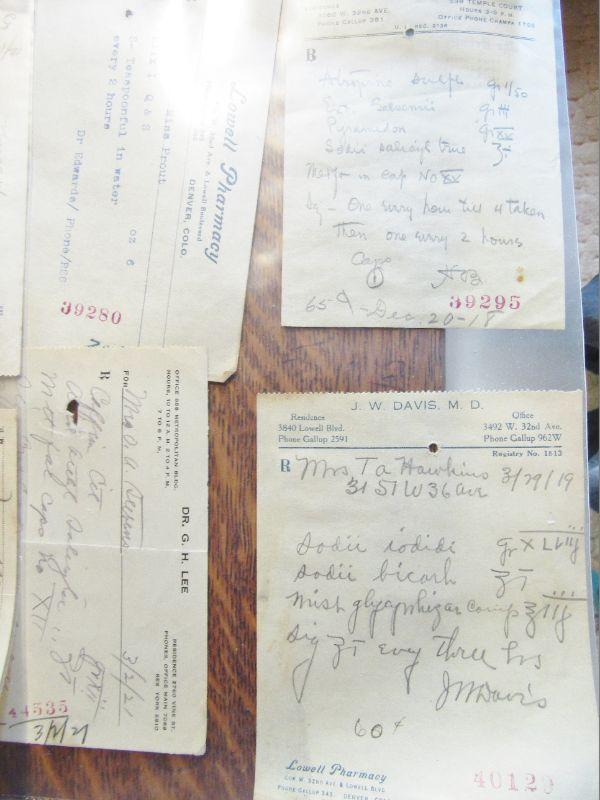 & Teaspoonful in water
every 2 hours
Miss Prout
oz 6
Dr Edwards/ Phone/
39280
Lowell Pharmacy
Cor W. 32nd Ave. & Lowell Boulevard
DENVER, COLO.
RESIDENCE
W. 32ND AVE.
PHONE GALLUP 381
TEMPLE COURT
HOURS 3-5 P.M.
OFFICE PHONE CHAMPA
U. S. REG. 2134
R
Atropine Sulph gr 1/50
Ext
Pyramidon gr XX
Sodii salicyl true
in cap No XX
Sig - One every hour till 4 taken
Then one every 2 hours
Caps
39295
65¢ - Dec. 20-18
OFFICE 558 METROPOLITAN BLDG.
HOURS, 10 TO 12 A.M. 2 TO 4 P.M.
7 TO 8 P.M.
DR. G. H. LEE
RESIDENCE 2760 VINE ST.
PHONES, OFFICE MAIN 7069
RES YORK 2810
FOR Mrs
3/2/21
R
Caffein Cit
caps No XII
44535
3/2/21
J. W. DAVIS, M. D.
Residence
3840 Lowell Blvd.
Phone Gallup 2591
Office
3492 W. 32nd Ave.
Phone Gallup 962W
Registry No. 1813
R Mrs T A Hawkins 3/29/19
3151 W 36 ave
Sodii iodidi gr
Sodii bicarb
Mist glycyrrhizae Comp
Sig ʒ ī every three hrs
JW Davis
60¢
Lowell Pharmacy
COR W. 32ND AVE & LOWELL BLVD
PHONE GALLUP 343. DENVER, COLO.
40129